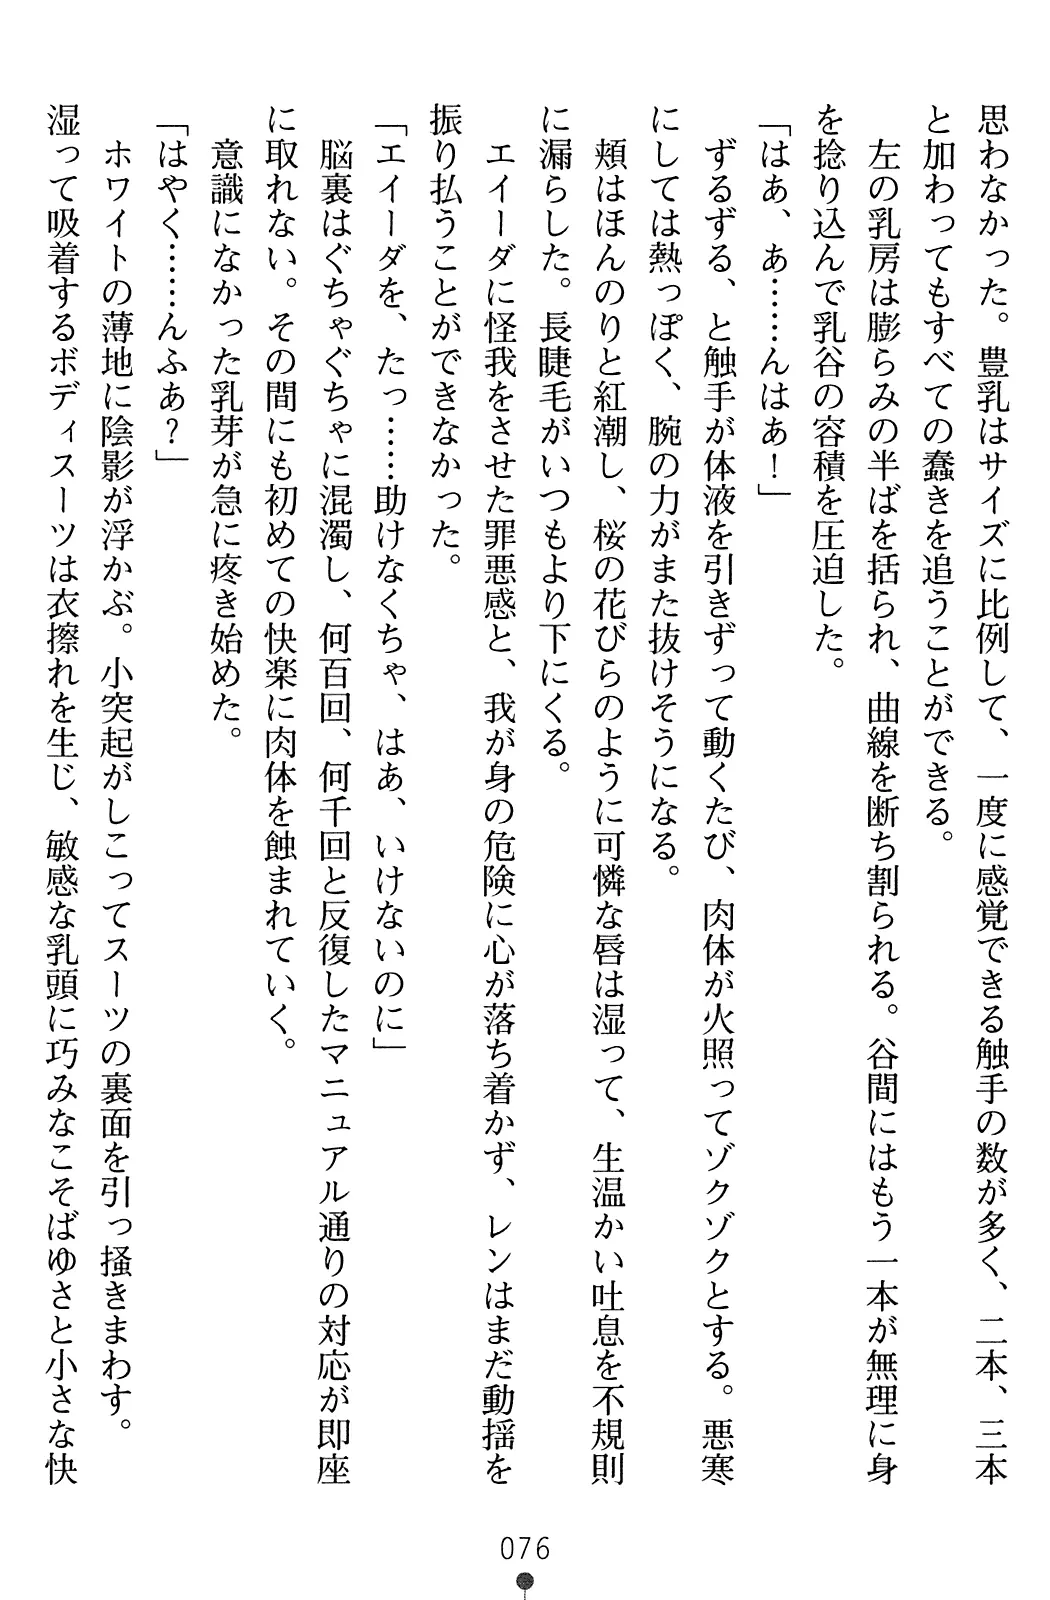 思わなかった。豊乳はサイズに比例して、一度に感覚できる触手の数が多く、二本、三本
と加わってもすべての蠢きを追うことができる。
左の乳房は膨らみの半ばを括られ、曲線を断ち割られる。谷間にはもう一本が無理に身
を捻り込んで乳谷の容積を圧迫した。
「はあ、あ……んはあ！」
ずるずる、と触手が体液を引きずって動くたび、肉体が火照ってゾクゾクとする。悪寒
にしては熱っぽく、腕の力がまた抜けそうになる。
頬はほんのりと紅潮し、桜の花びらのように可憐な唇は湿って、生温かい吐息を不規則
に漏らした。長睫毛がいつもより下にくる。
エイーダに怪我をさせた罪悪感と、我が身の危険に心が落ち着かず、レンはまだ動揺を
振り払うことができなかった。
「エイーダを、たっ……助けなくちゃ、はあ、いけないのに」
脳裏はぐちゃぐちゃに混濁し、何百回、何千回と反復したマニュアル通りの対応が即座
に取れない。その間にも初めての快楽に肉体を蝕まれていく。
意識になかった乳芽が急に疼き始めた。
「はやく……んふあ？」
ホワイトの薄地に陰影が浮かぶ。小突起がしこってスーツの裏面を引っ掻きまわす。
湿って吸着するボディスーツは衣擦れを生じ、敏感な乳頭に巧みなこそばゆさと小さな快
076